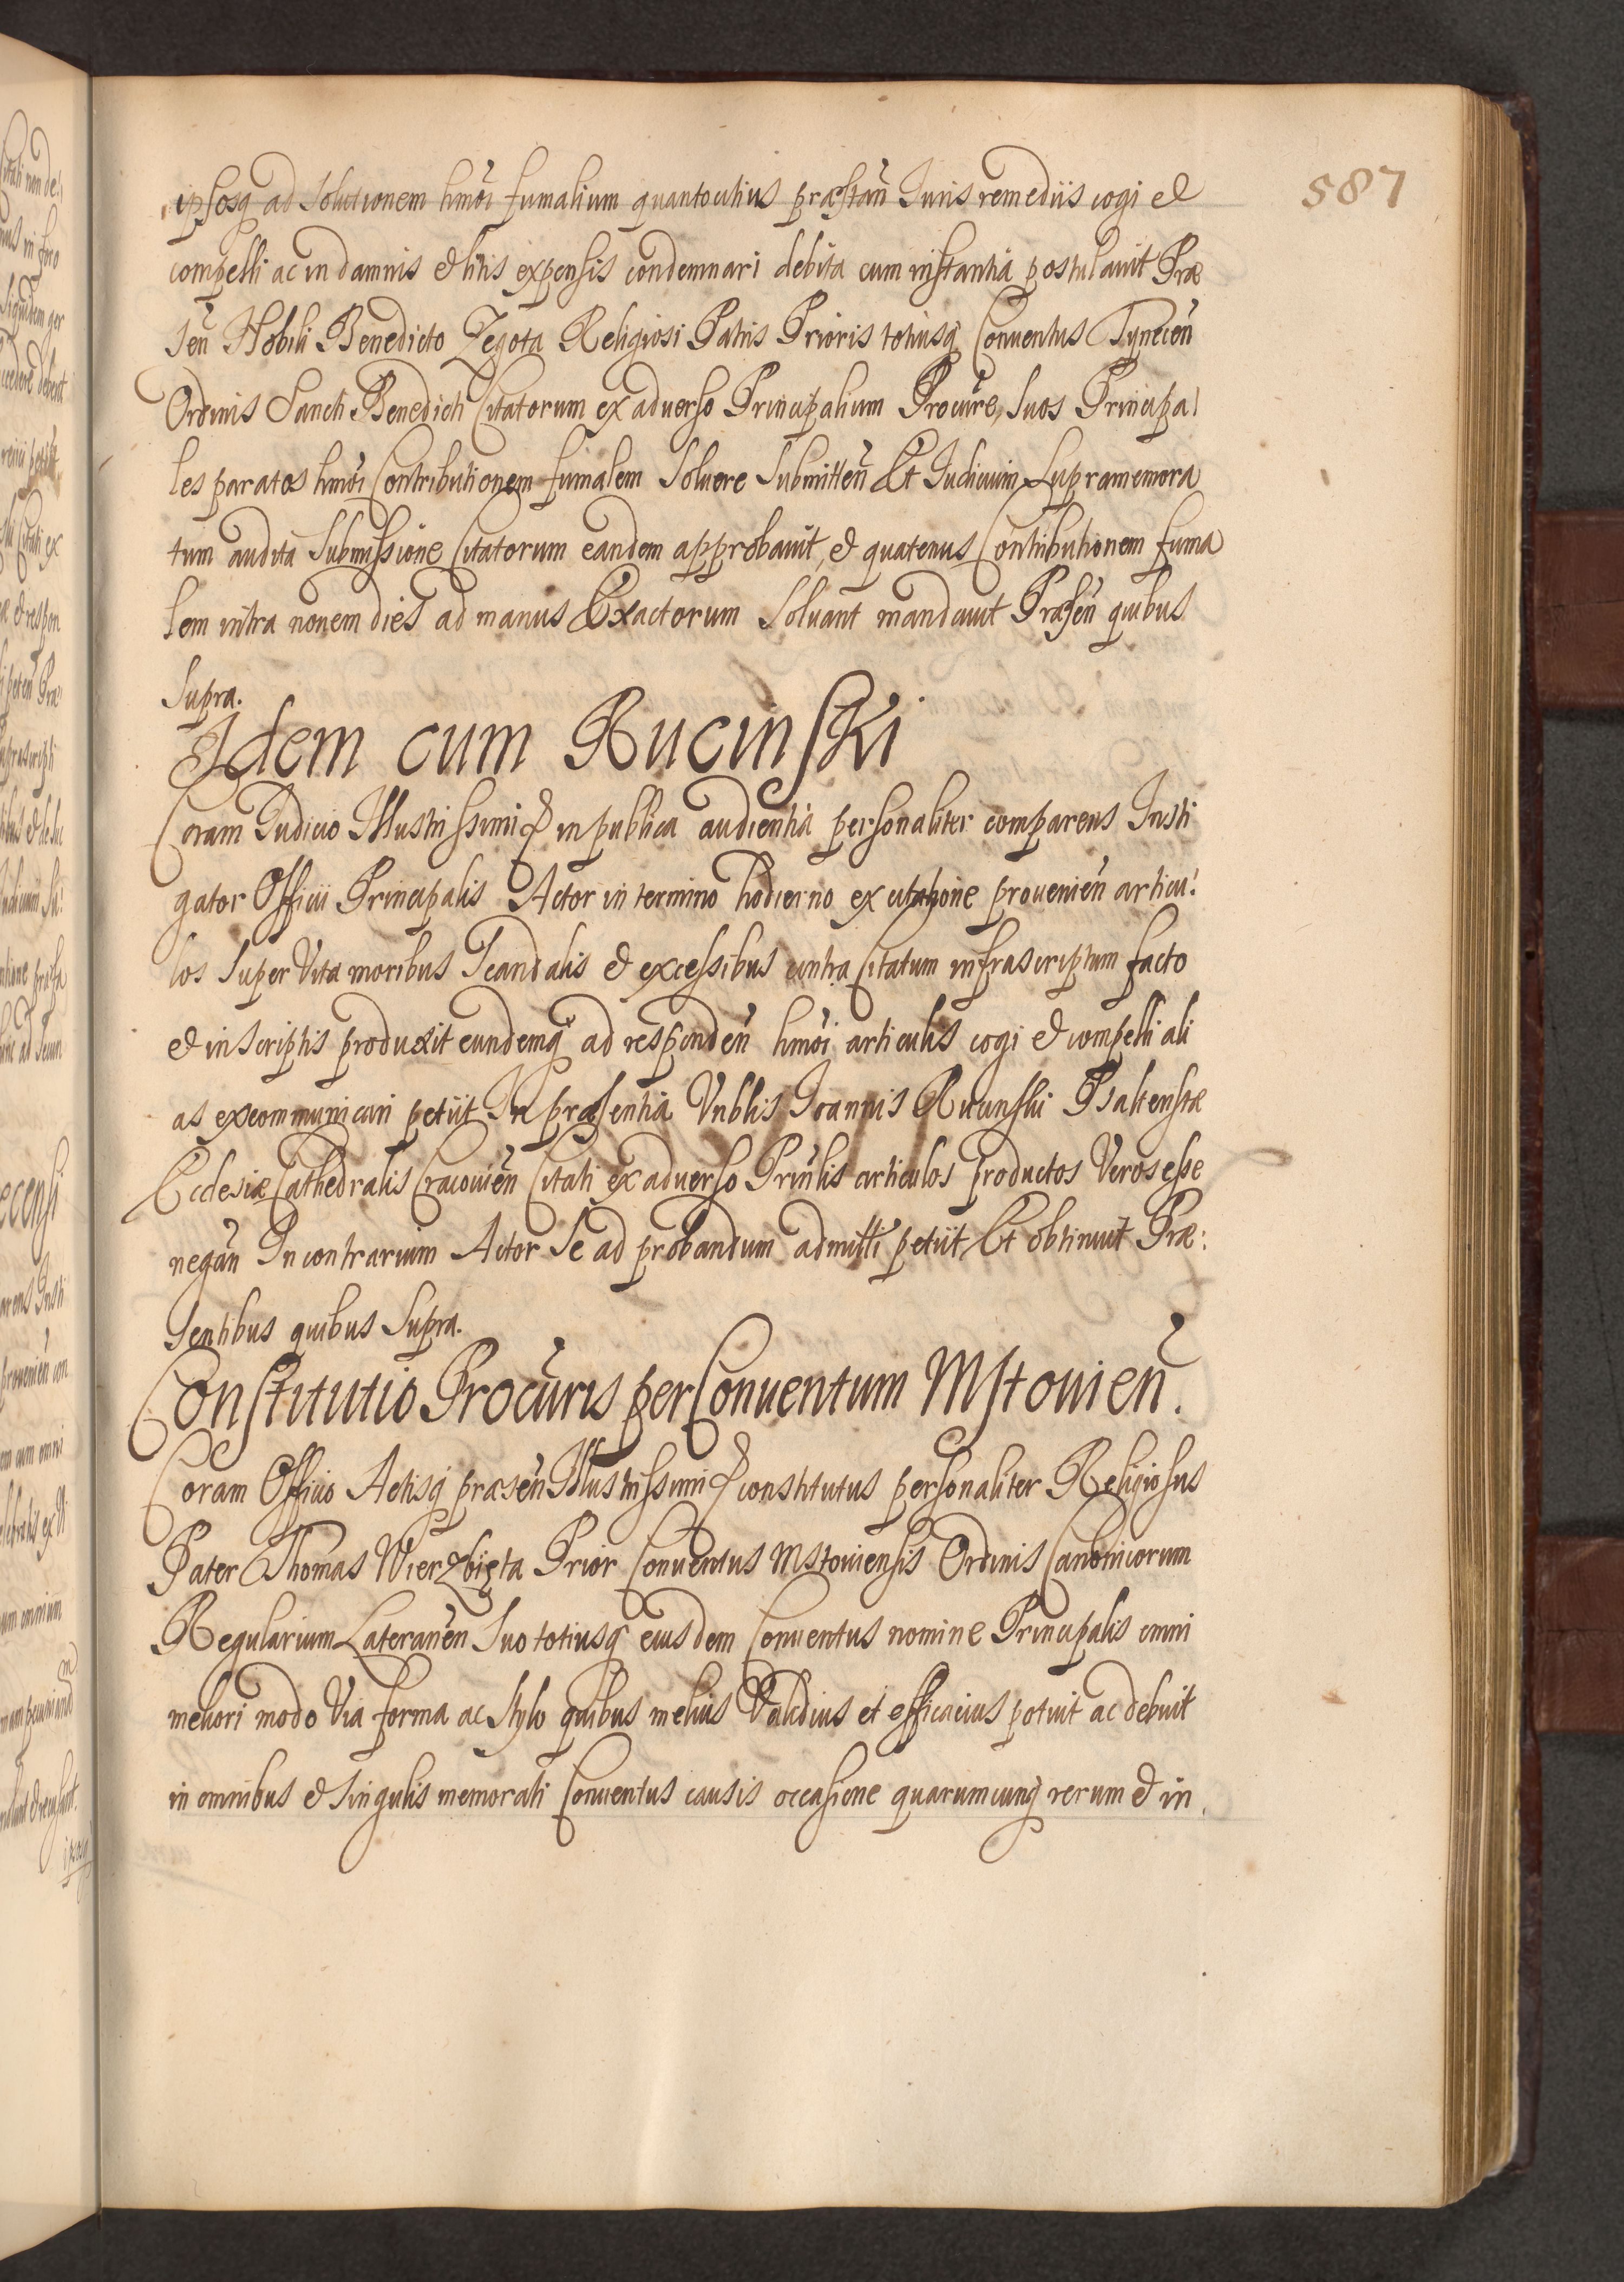 587
ipsosq ad Solutionem hmoi fumalium quantocutius præstan Juris remediis cogi et
compelli ac in damnis et litis expensis condemnari debita cum instantia postulavit Præ
sen Nobili Benedicto Zegota Religiosi Patris Prioris totiusq Conventus Tynecen
Ordinis Sancti Benedicti Citatorum ex adverso Principalium Procure, Suos Principa
les paratos hmoi Contributionem fumalem Solvere Submitten Et Judicium Supramemora
tum audita Submissione Citatorum eandem approbavit, et quatenus Contributionem fuma
lem intra novem dies ad manus Exactorum Solvant mandavit Præsen quibus
Supra.
Idem cum Rucinski
Coram Judicio Illustrissimi & in publica audientia personaliter comparens Insti
gator Officii Principalis Actor in termino hodierno ex citatione provenien articu
los Super Vita moribus Scandalis et excessibus contra Citatum infrascriptum facto
et in Scriptis produxit eundemq ad responden hmoi articulis cogi et compelli ali
as excommunicari petiit In præsentia Vnblis Joannis Rucinski Psaltenstæ
Ecclesiæ Cathedralis Cracovien Citati ex adverso Prinlis articulos productos Veros esse
negan In contrarium Actor Se ad probandum admitti petiit Et obtinuit Præ:
Sentibus quibus Supra.
Constitutio Procuris per Conventum Mstovien.
Coram Officio Actisq præsen Illustrissimi & constitutus personaliter Religiosus
Pater Thomas Wierzbięta Prior Conventus Mstoviensis Ordinis Canonicorum
Regularium Lateranen Suo totiusq eiusdem Conventus nomine Principalis omni
meliori modo Via forma ac Stylo quibus melius Validius et efficacius potuit ac debuit
in omnibus et Singulis memorati Conventus causis occasione quarumcunq rerum et in